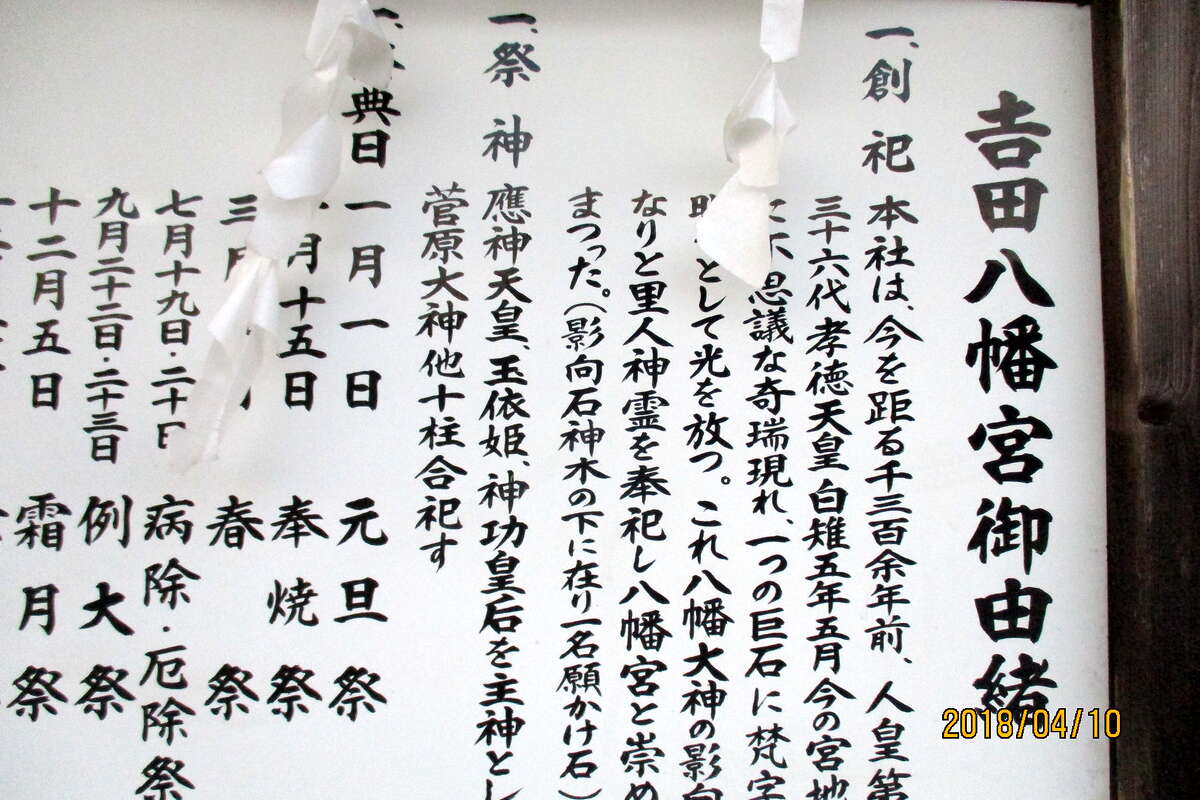 吉田八幡宮御由緒
一、創祀 本社は、今を距る千三百余年前、人皇第
三十六代孝徳天皇白雉五年五月今の宮地
不思議な奇瑞現れ、一つの巨石に梵字
として光を放つ。これ八幡大神の影向
なりと里人神霊を奉祀し八幡宮と崇め
まつった。(影向石神木の下に在り一名願かけ石)
一、祭神 應神天皇、玉依姫、神功皇后を主神とし
菅原大神他十柱合祀す
一、典日 一月一日 元旦祭
月十五日 奉焼祭
三月 春祭
七月十九日・二十日 病除・厄除祭
九月二十二日・二十三日 例大祭
十二月五日 霜月祭
2018/04/10